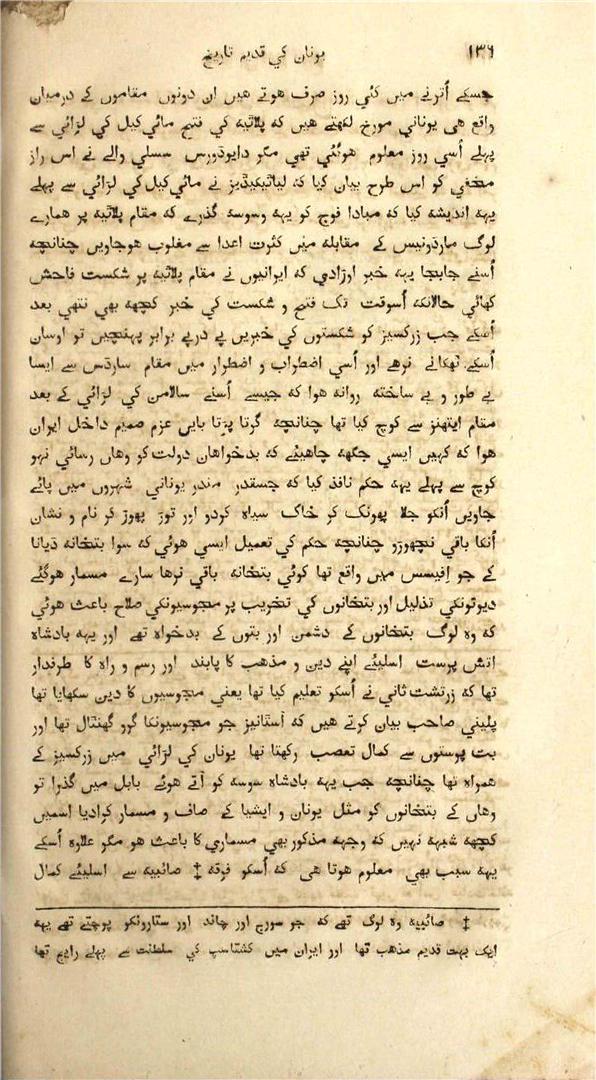 ۱۳۶ یونان کي قدیم تاریخ
جسکے اُترنے میں کئي روز صرف هوتے هیں ان دونوں مقاموں کے درمیان
واقع هی یوناني مورخ لکھتے هیں که پلاٹیه کي فتح مائي کیل کي لڑائي سے
پہلے اُسي روز معلوم هوئي تهي مگر دایوڈورس سسلي والے نے اس راز
مخفي کو اس طرح بیان کیا که لیاٹیکیڈیز نے مائي کیل کي لڑائي سے پہلے
یہه اندیشه کیا که مبادا فوج کو یہه وسوسه گذرے که مقام پلاٹیه پر همارے
لوگ مارڈونیس کے مقابله میں کثرت اعدا سے مغلوب هوجاویں چنانچه
اُسنے جابجا یہه خبر اوڑادي که ایرانیوں نے مقام پلاٹیه پر شکست فاحش
کهائي حالانکه اُسوقت تک فتح و شکست کي خبر کچهه بهي نتهي بعد
اُسکے جب زرکسیز کو شکستوں کي خبریں پے درپے برابر پہنچیں تو اوسان
اُسکے ٹهکانے نرهے اور اُسي اضطراب و اضطرار میں مقام سارڈس سے ایسا
بے طور و بے ساخته روانه هوا که جیسے اُسنے سالامن کي لڑائي کے بعد
مقام ایتهنز سے کوچ کیا تها چنانچه گرتا پڑتا بایں عزم صمیم داخل ایران
هوا که کہیں ایسي جگهه چاهیئے که بدخواهان دولت کو وهاں رسائي نہو
کوچ سے پہلے یہه حکم نافذ کیا که جسقدر مندر یوناني شہروں میں پائے
جاویں اُنکو جلا پهونک کر خاک سیاه کردو اور توڑ پهوڑ کر نام و نشان
اُنکا باقي نچهوڑو چنانچه حکم کي تعمیل ایسي هوئي که سوا بتخانه ڈیانا
کے جو اِفیسس میں واقع تها کوئي بتخانه باقي نرها سارے مسمار هوگئے
دیوتونکي تذلیل اور بتخانوں کي تخریب پر مجوسیونکي صلاح باعث هوئي
که وه لوگ بتخانوں کے دشمن اور بتوں کے بدخواه تهے اور یہه بادشاه
آتش پرست اسلیئے اپنے دین و مذهب کا پابند اور رسم و راه کا طرفدار
تها که زرتشت ثاني نے اُسکو تعلیم کیا تها یعني مجوسیوں کا دین سکهایا تها
پلیني صاحب بیان کرتے هیں که آستانیز جو مجوسیونکا گرو گهنٹال تها اور
بت پرستوں سے کمال تعصب رکهتا تها یونان کي لڑائي میں زرکسیز کے
همراه تها چنانچه جب یہه بادشاه سوسه کو آتے هوئے بابل میں گذرا تو
وهاں کے بتخانوں کو مثل یونان و ایشیا کے صاف و مسمار کرادیا اسمیں
کچهه شبهه نہیں که وجهه مذکور بهي مسماري کا باعث هو مگر علاوه اُسکے
یہه سبب بهي معلوم هوتا هی که اُسکو فرقه ‡ صائبیه سے اسلیئے کمال
‡ صائبیه وه لوگ تهے که جو سورج اور چاند اور ستارونکو پوجتے تهے یہه
ایک بہت قدیم مذهب تها اور ایران میں کشتاسپ کي سلطنت سے پہلے رایج تها